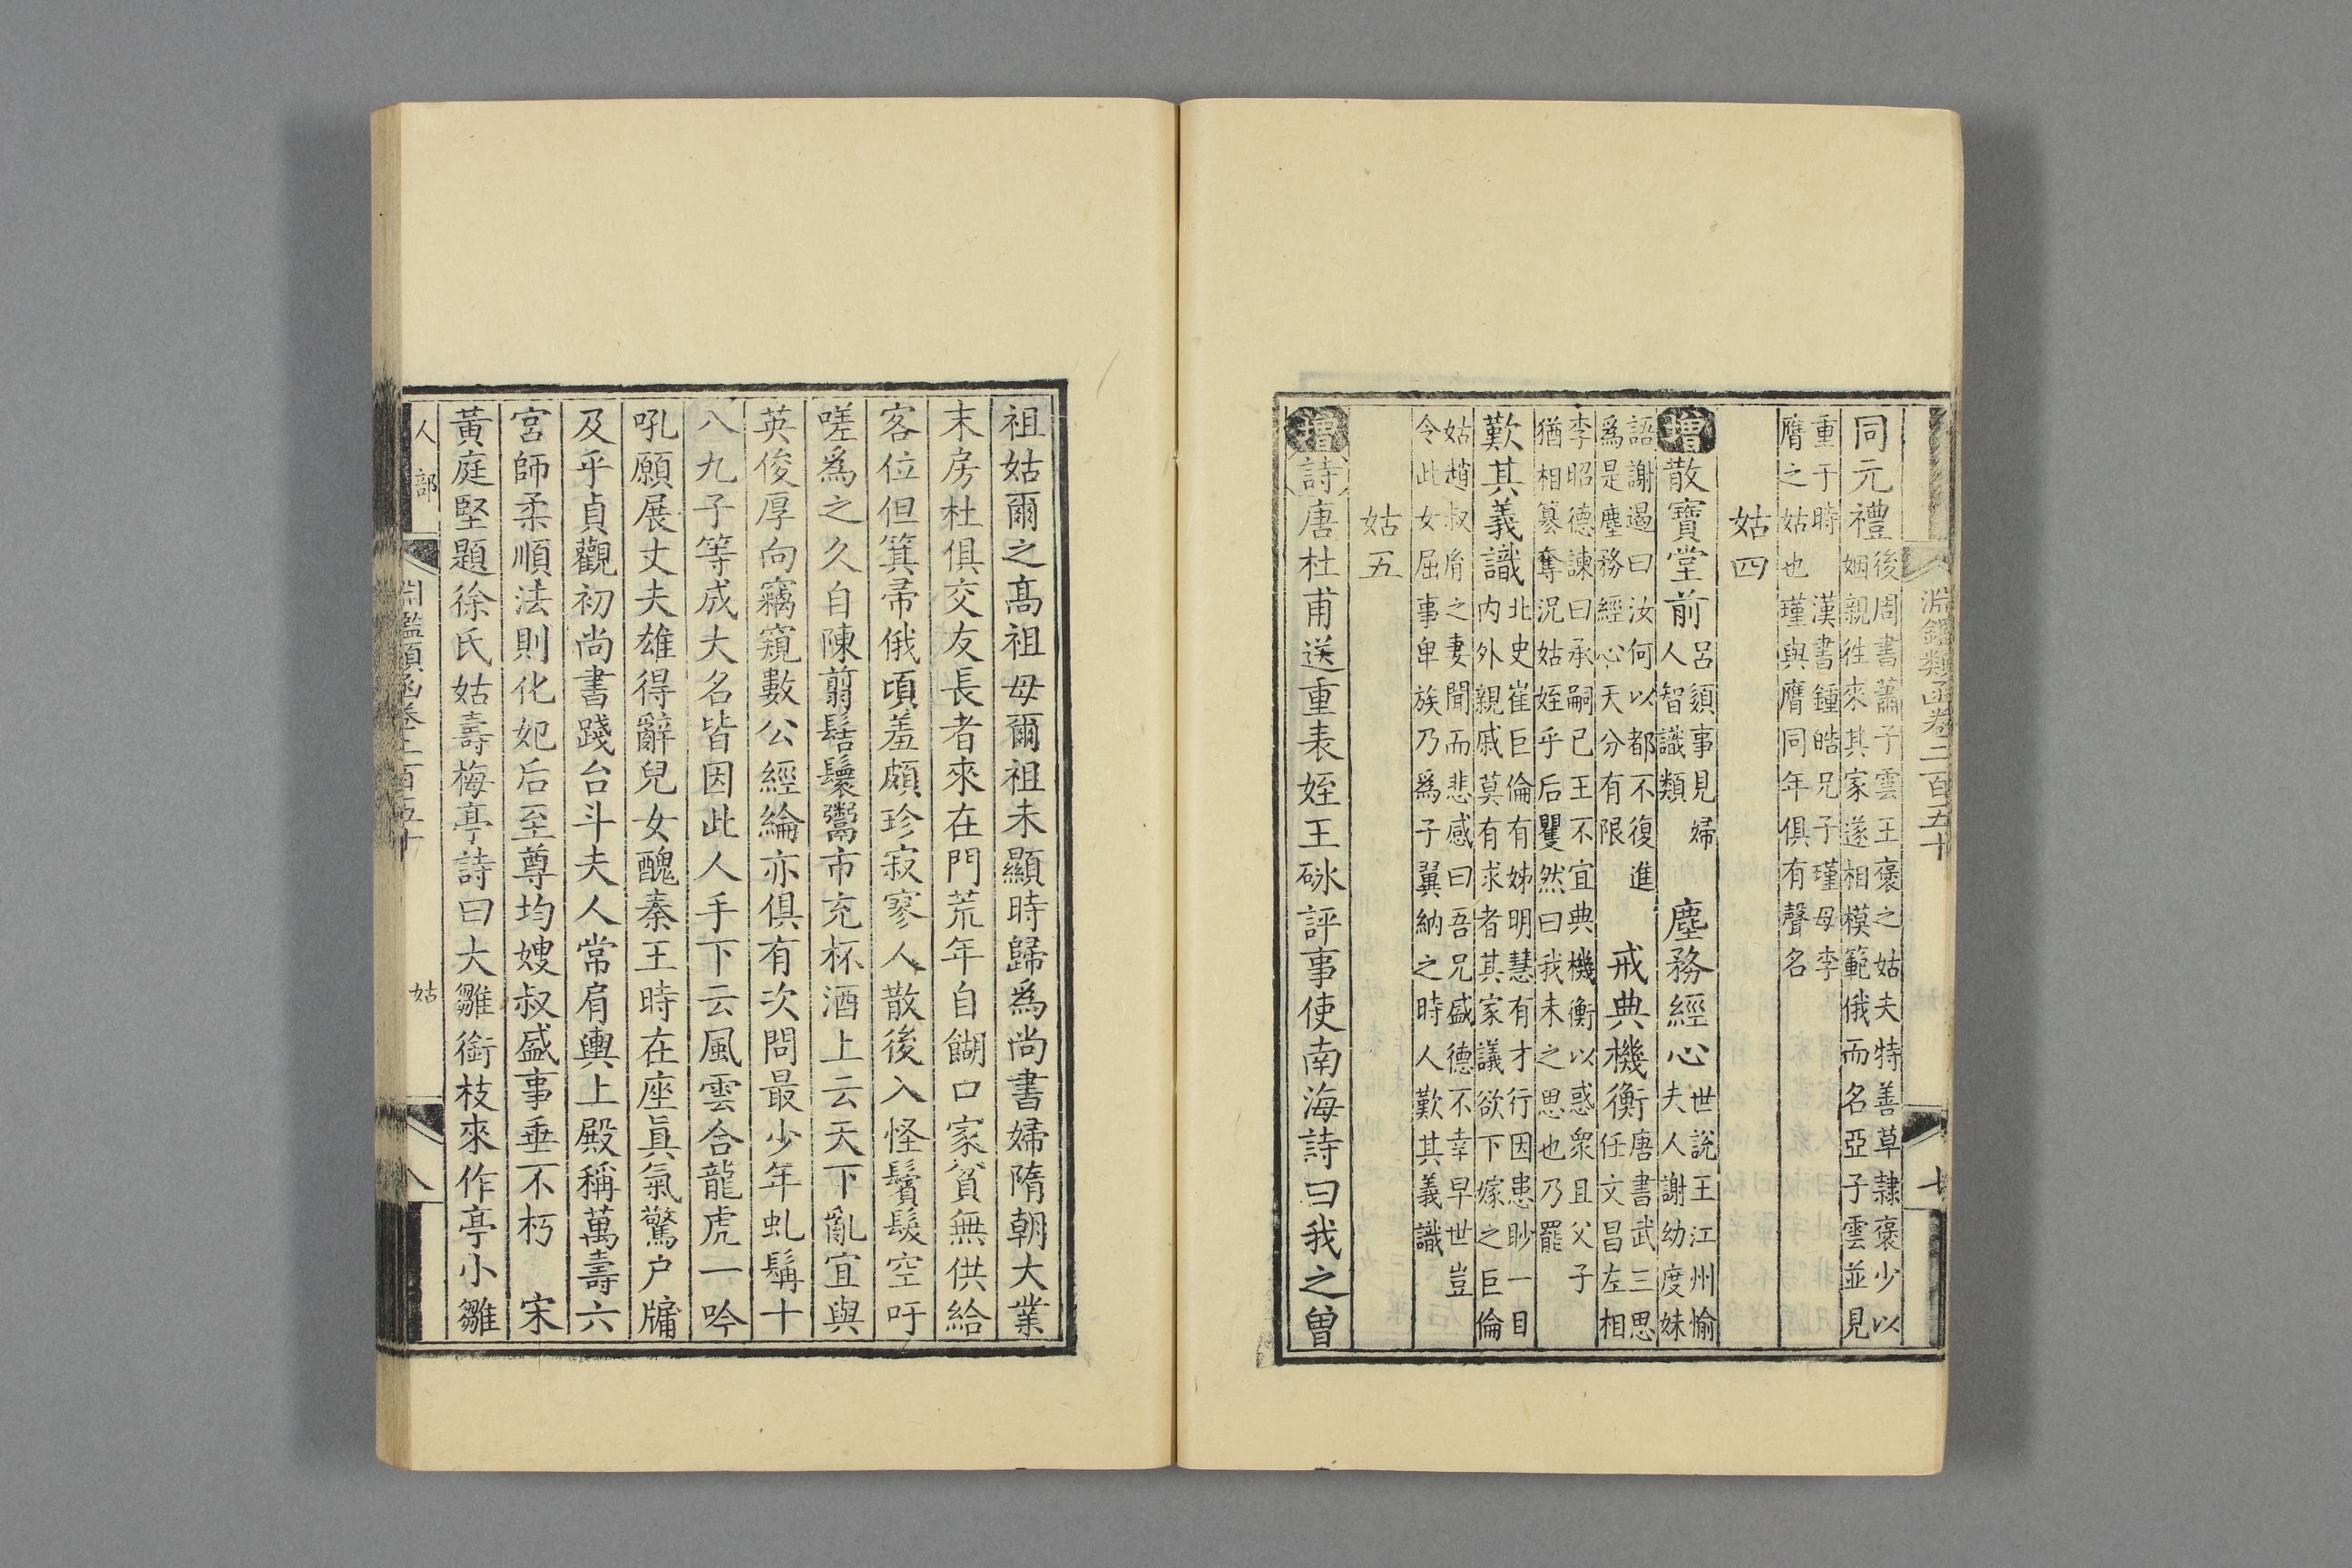 淵鑑類函卷二百五十
七
同元禮後周書蕭子雲王褒之姑夫特善草隷褒少以
姻親往來其家遂相模範俄而名亞子雲並見
重于時　漢書鍾皓兄子瑾母李
膺之姑也瑾與膺同年俱有聲名
姑四
增散寶堂前呂頦事見婦
人智識類　塵務經心世說王江州愉
夫人謝幼度妹
語謝遏曰汝何以都不復進
爲是塵務經心天分有限　戒典機衡唐書武三思
任文昌左相
李昭德諫曰承嗣已王不宜典機衡以惑衆且父子
猶相簒奪況姑姪乎后矍然曰我未之思也乃罷
歎其義識北史崔巨倫有姊明慧有才行因患眇一目
內外親戚莫有求者其家議欲下嫁之巨倫
姑趙叔胤之妻聞而悲感曰吾兄盛德不幸早世豈
令此女屈事卑族乃爲子翼納之時人歎其義識
姑五
增詩唐杜甫送重表姪王砅評事使南海詩曰我之曾
祖姑爾之高祖母爾祖未顯時歸爲尚書婦隋朝大業
末房杜俱交友長者來在門荒年自餬口家貧無供給
客位但箕帚俄頃羞頗珍寂寥人散後入怪鬢髮空吁
嗟爲之久自陳翦髻鬟鬻市充杯酒上云天下亂宜與
英俊厚向竊窺數公經綸亦俱有次問最少年虬髯十
八九子等成大名皆因此人手下云風雲合龍虎一吟
吼願展丈夫雄得辭兒女醜秦王時在座眞氣驚户牖
及乎貞觀初尚書踐台斗夫人常肩輿上殿稱萬壽六
宮師柔順法則化妃后至尊均嫂叔盛事垂不朽　宋
黃庭堅題徐氏姑壽梅亭詩曰大雛銜枝來作亭小雛
人部
淵鑑類函卷二百五十
姑
八